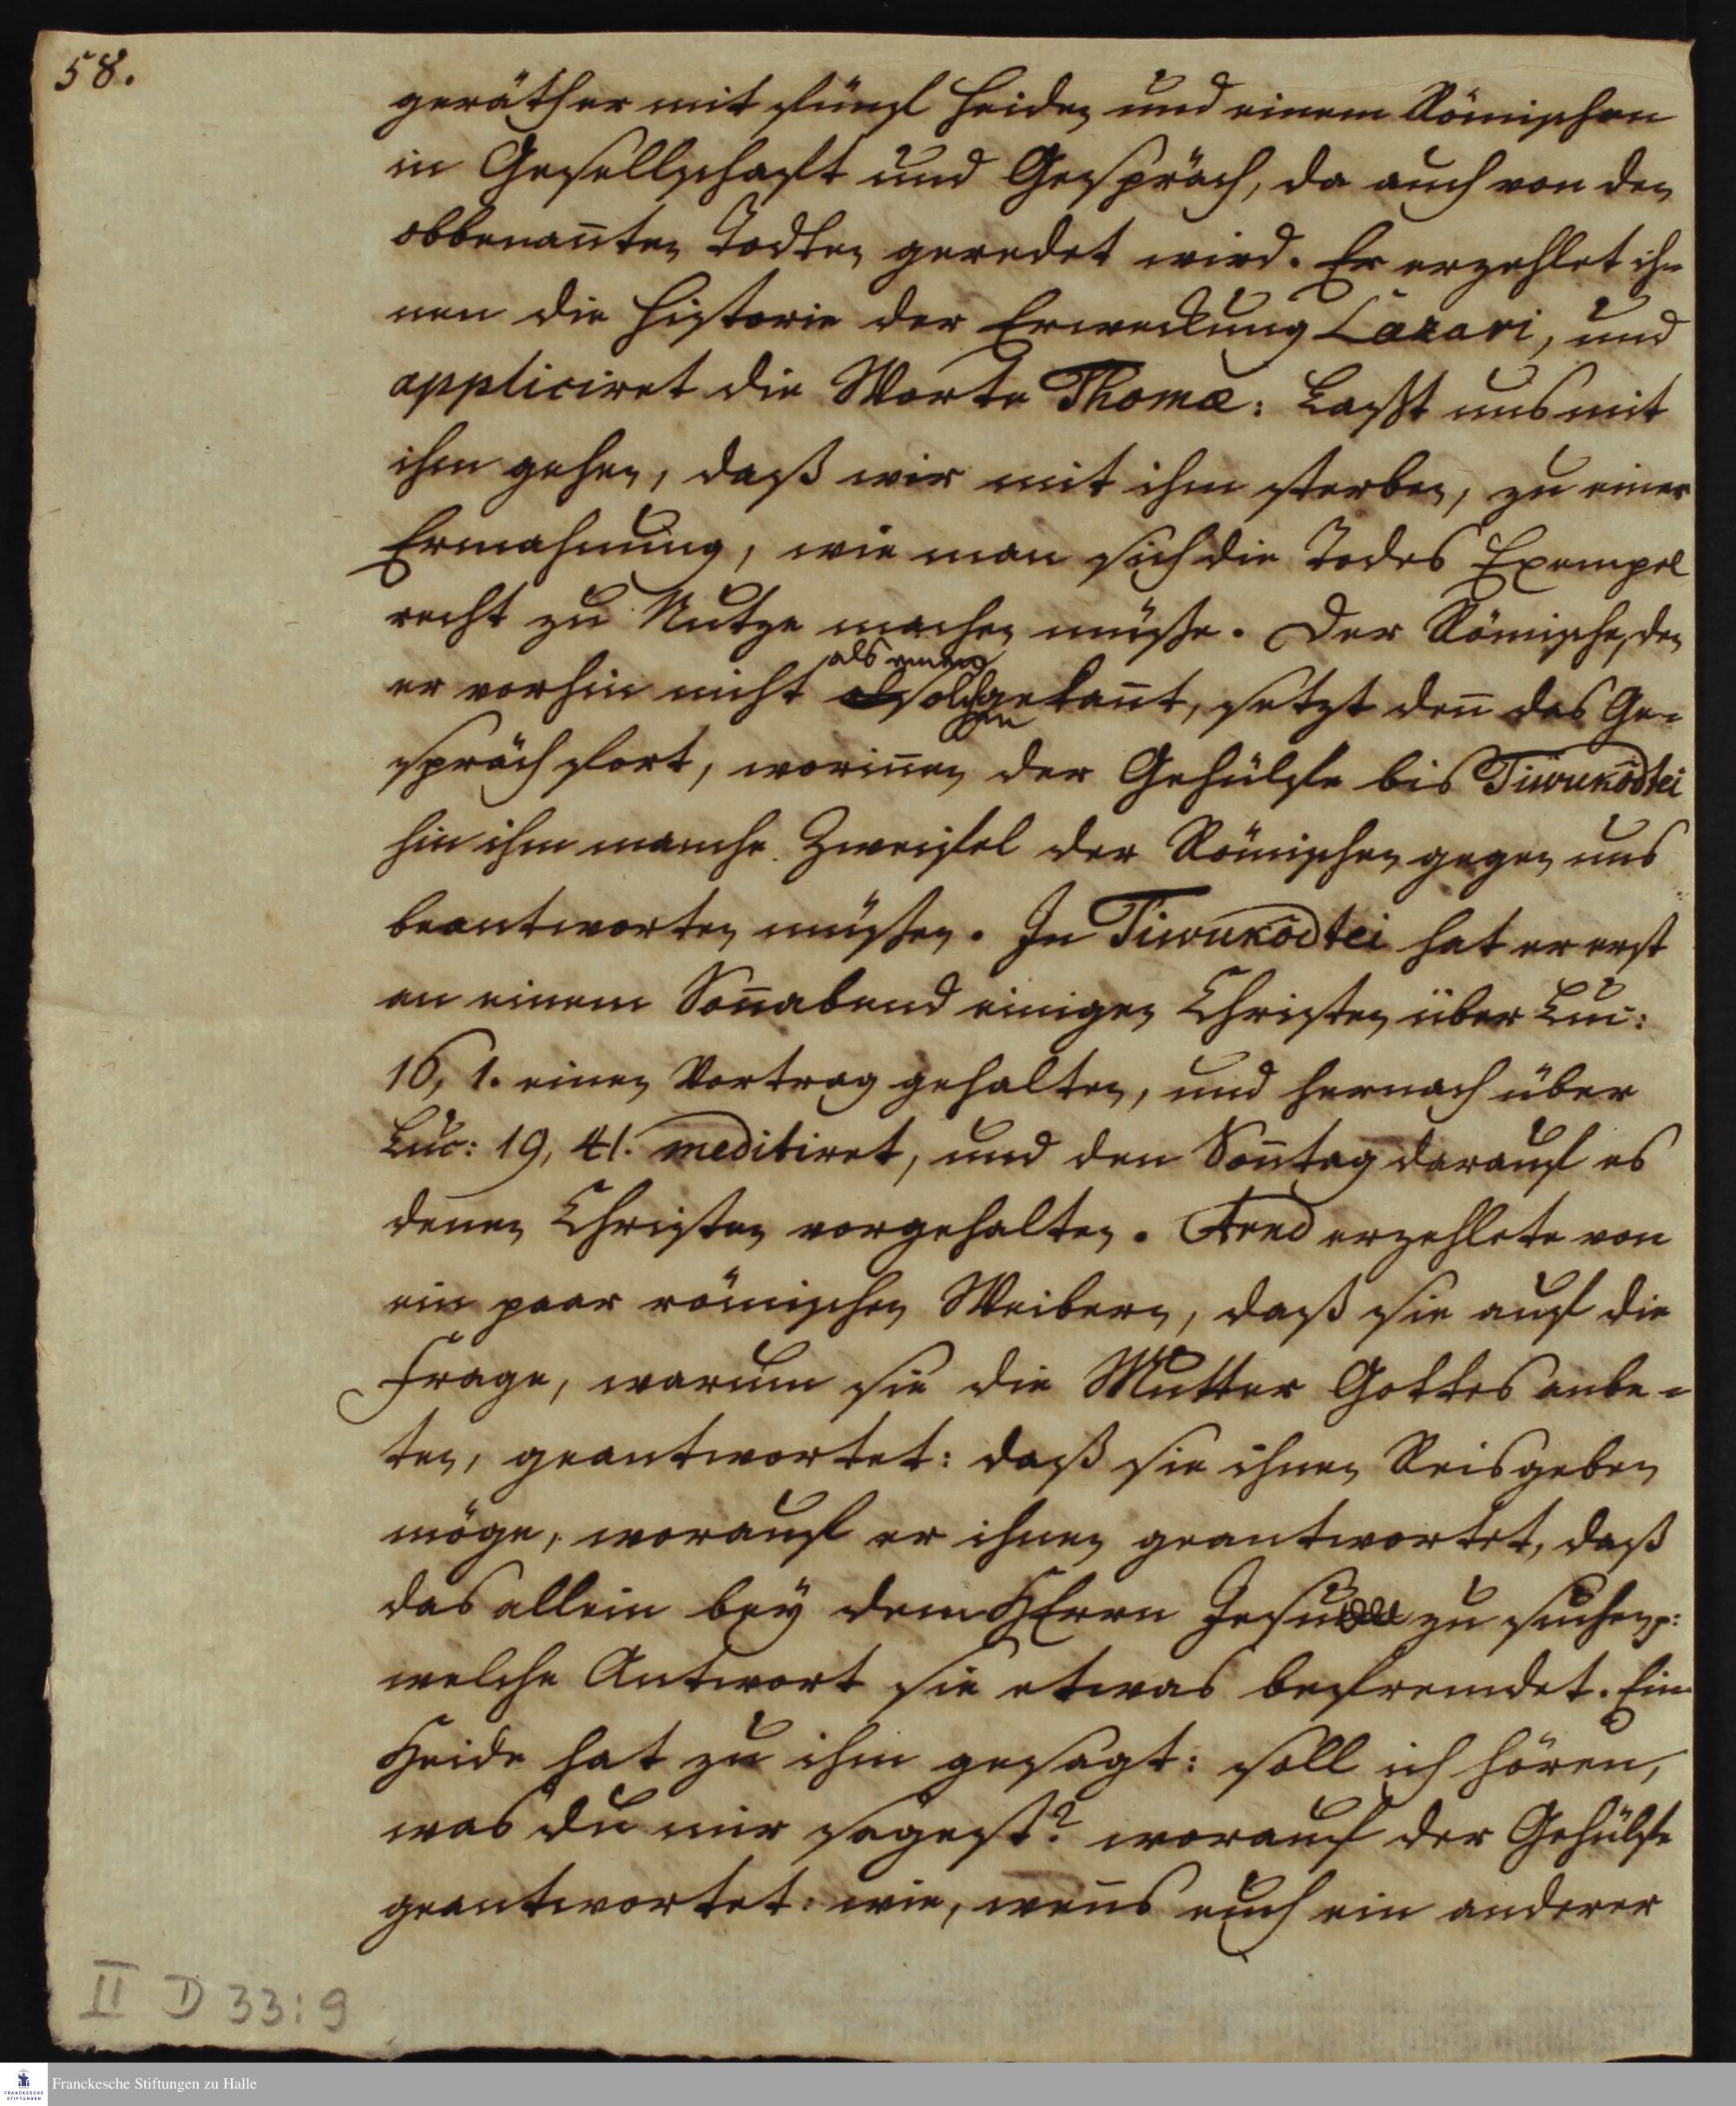 58.
geräther mit fünf Heiden und einem Römischen
in Gesellschaft und Gespräch, da auch von den
obbenañten Todten geredet wird. Er erzehlet ih-
nen die Historie der Erweckung Lazari, und
appliciret die Worte Thomæ: Laßt uns mit
ihm gehen, daß wir mit ihm sterben, zu einer
Ermahnung, wie man sich die Todes Exempel
recht zu Nutze machen müsse. Der Römische, den
er vorhin nicht als einen solchen gekañt, setzt deñ das Ge-
spräch fort, woriñen der Gehülfe bis Tiwukôdtei
hin ihm manche Zweifel der Römischen gegen uns
beantworten müssen. In Tiwukôdtei hat er erst
an einem Soñabend einigen Christen über Luc:
16, 1. einen Vortrag gehalten, und hernach über
Luc: 19, 41. meditiret, und den Soñtag darauf es
denen Christen vorgehalten. Arud erzehlete von
ein paar römischen Weibern, daß sie auf die
Frage, warum sie die Mutter Gottes anbe-
ten, geantwortet: daß sie ihnen Reis geben
möge, worauf er ihnen geantwortet, daß
das allein bey dem HErrn Jesu zu suchen p:
welche Antwort sie etwas befremdet. Ein
Heide hat zu ihm gesagt: soll ich hören,
was du mir sagest? worauf der Gehülfe
geantwortet: wie, weñs euch ein anderer
II D 33:9
Franckesche Stiftungen zu Halle
FRANCKESCHE
STIFTUNGEN